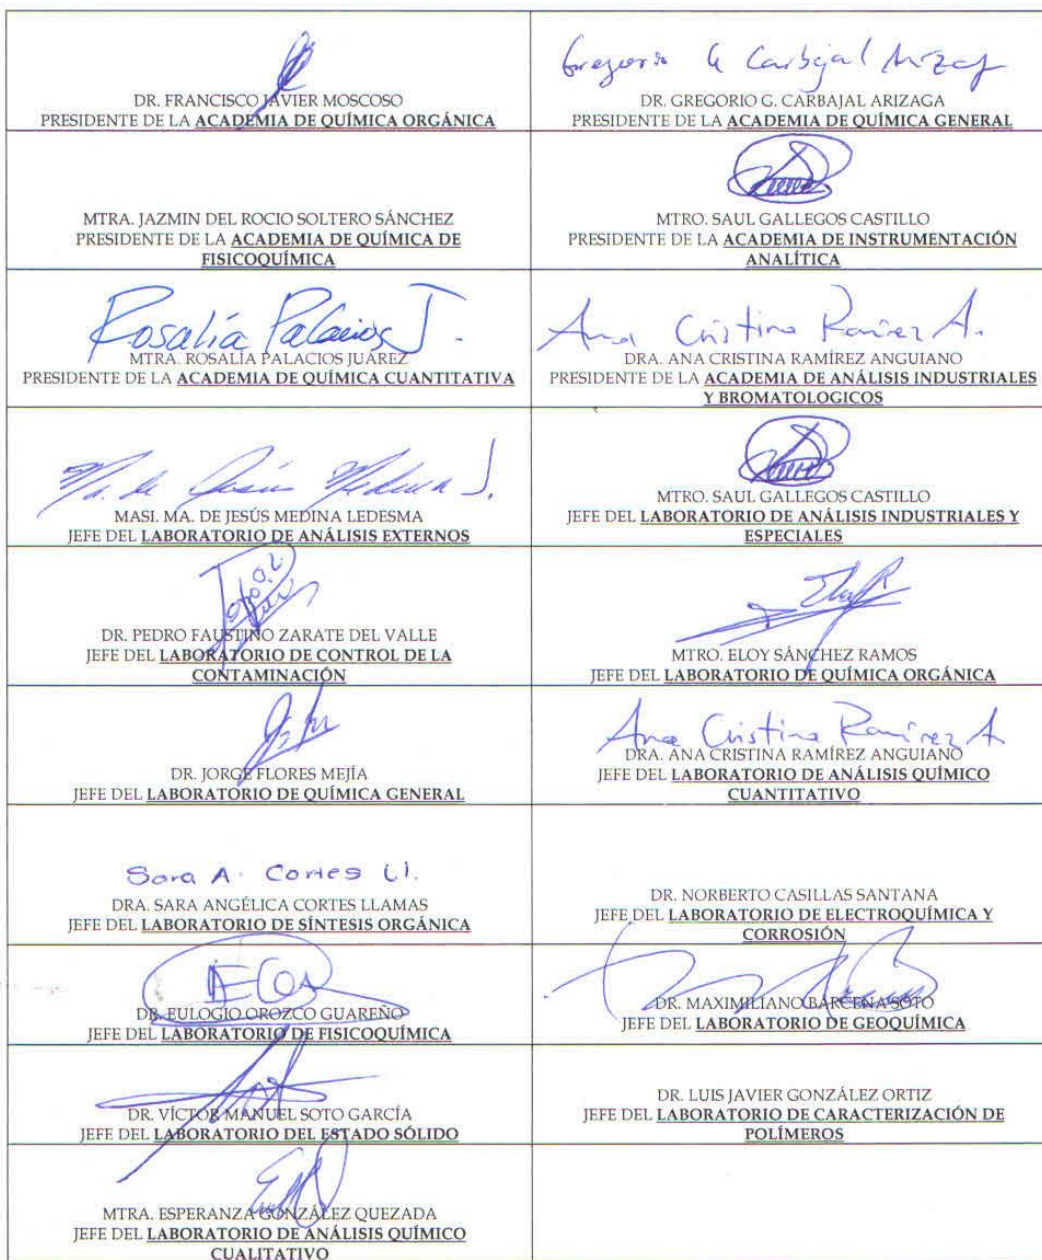 DR. FRANCISCO JAVIER MOSCOSO
PRESIDENTE DE LA ACADEMIA DE QUÍMICA ORGÁNICA
Gregorio G Carbajal Arizag
DR. GREGORIO G. CARBAJAL ARIZAGA
PRESIDENTE DE LA ACADEMIA DE QUÍMICA GENERAL
MTRA. JAZMIN DEL ROCIO SOLTERO SÁNCHEZ
PRESIDENTE DE LA ACADEMIA DE QUÍMICA DE
FISICOQUÍMICA
MTRO. SAUL GALLEGOS CASTILLO
PRESIDENTE DE LA ACADEMIA DE INSTRUMENTACIÓN
ANALÍTICA
Rosalía Palacios J.
MTRA. ROSALÍA PALACIOS JUÁREZ
PRESIDENTE DE LA ACADEMIA DE QUÍMICA CUANTITATIVA
Ana Cristina Ramírez A.
DRA. ANA CRISTINA RAMÍREZ ANGUIANO
PRESIDENTE DE LA ACADEMIA DE ANÁLISIS INDUSTRIALES
Y BROMATOLOGICOS
Ma. de Jesús Medina
MASI. MA. DE JESÚS MEDINA LEDESMA
JEFE DEL LABORATORIO DE ANÁLISIS EXTERNOS
MTRO. SAUL GALLEGOS CASTILLO
JEFE DEL LABORATORIO DE ANÁLISIS INDUSTRIALES Y
ESPECIALES
DR. PEDRO FAUSTINO ZARATE DEL VALLE
JEFE DEL LABORATORIO DE CONTROL DE LA
CONTAMINACIÓN
MTRO. ELOY SÁNCHEZ RAMOS
JEFE DEL LABORATORIO DE QUÍMICA ORGÁNICA
DR. JORGE FLORES MEJÍA
JEFE DEL LABORATORIO DE QUÍMICA GENERAL
Ana Cristina Ramírez A
DRA. ANA CRISTINA RAMÍREZ ANGUIANO
JEFE DEL LABORATORIO DE ANÁLISIS QUÍMICO
CUANTITATIVO
Sara A. Cortes Ll.
DRA. SARA ANGÉLICA CORTES LLAMAS
JEFE DEL LABORATORIO DE SÍNTESIS ORGÁNICA
DR. NORBERTO CASILLAS SANTANA
JEFE DEL LABORATORIO DE ELECTROQUÍMICA Y
CORROSIÓN
DR. EULOGIO OROZCO GUAREÑO
JEFE DEL LABORATORIO DE FISICOQUÍMICA
DR. MAXIMILIANO BARCENA SOTO
JEFE DEL LABORATORIO DE GEOQUÍMICA
DR. VÍCTOR MANUEL SOTO GARCÍA
JEFE DEL LABORATORIO DEL ESTADO SÓLIDO
DR. LUIS JAVIER GONZÁLEZ ORTIZ
JEFE DEL LABORATORIO DE CARACTERIZACIÓN DE
POLÍMEROS
MTRA. ESPERANZA GONZÁLEZ QUEZADA
JEFE DEL LABORATORIO DE ANÁLISIS QUÍMICO
CUALITATIVO